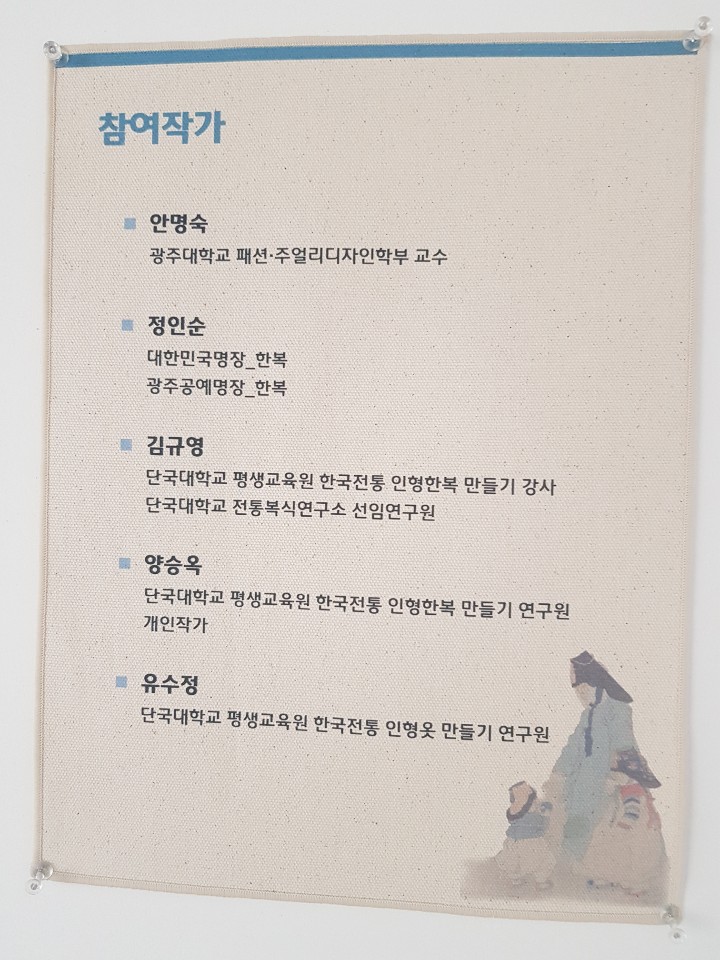 참여작가
안명숙
광주대학교 패션·주얼리디자인학부 교수
정인순
대한민국명장_한복
광주공예명장_한복
김규영
단국대학교 평생교육원 한국전통 인형한복 만들기 강사
단국대학교 전통복식연구소 선임연구원
양승옥
단국대학교 평생교육원 한국전통 인형한복 만들기 연구원
개인작가
유수정
단국대학교 평생교육원 한국전통 인형옷 만들기 연구원